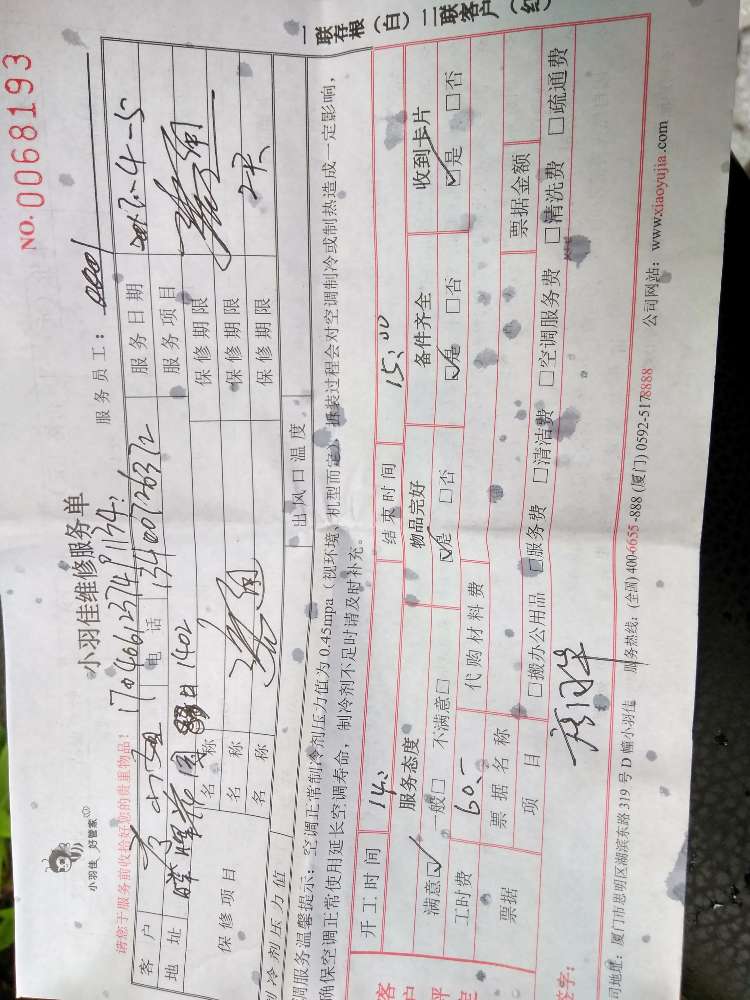 NO.0068193
小羽佳 好管家
小羽佳维修服务单
请您于服务前收拾好您的贵重物品!
服务员工:
客户
电话 13400726372
服务日期
地址
1402
服务项目
保修项目
名称
保修期限
名称
保修期限
名称
保修期限
制冷剂压力值
出风口温度
调服务温馨提示:空调正常制冷剂压力值为0.45mpa(视环境、机型而定),拆装过程会对空调制冷或制热造成一定影响,
确保空调正常使用延长空调寿命,制冷剂不足时请及时补充。
一联存根(白)二联客户(红)
开工时间
结束时间 15:00
客户评定
服务态度
物品完好
备件齐全
收到卡片
满意☑ 一般□ 不满意□
☑是 □否
☑是 □否
☑是 □否
工时费 60.-
代购材料费
票据
票据名称
票据金额
项目
□搬办公用品 □服务费 □清洁费 □空调服务费 □清洗费 □疏通费
签字:
司地址:厦门市思明区湖滨东路319号D幢小羽佳
服务热线:(全国)400-6655-888 (厦门) 0592-5178888
公司网站:www.xiaoyujia.com